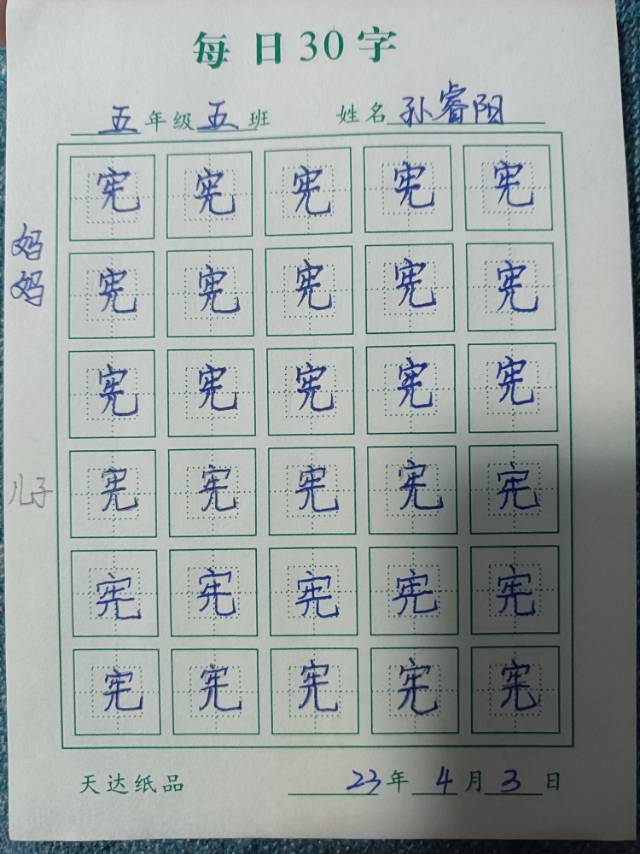 每日30字
五年级五班 姓名孙睿阳
宪宪宪宪宪
妈妈
宪宪宪宪宪
宪宪宪宪宪
儿子
宪宪宪宪宪
宪宪宪宪宪
宪宪宪宪宪
天达纸品 23年4月3日